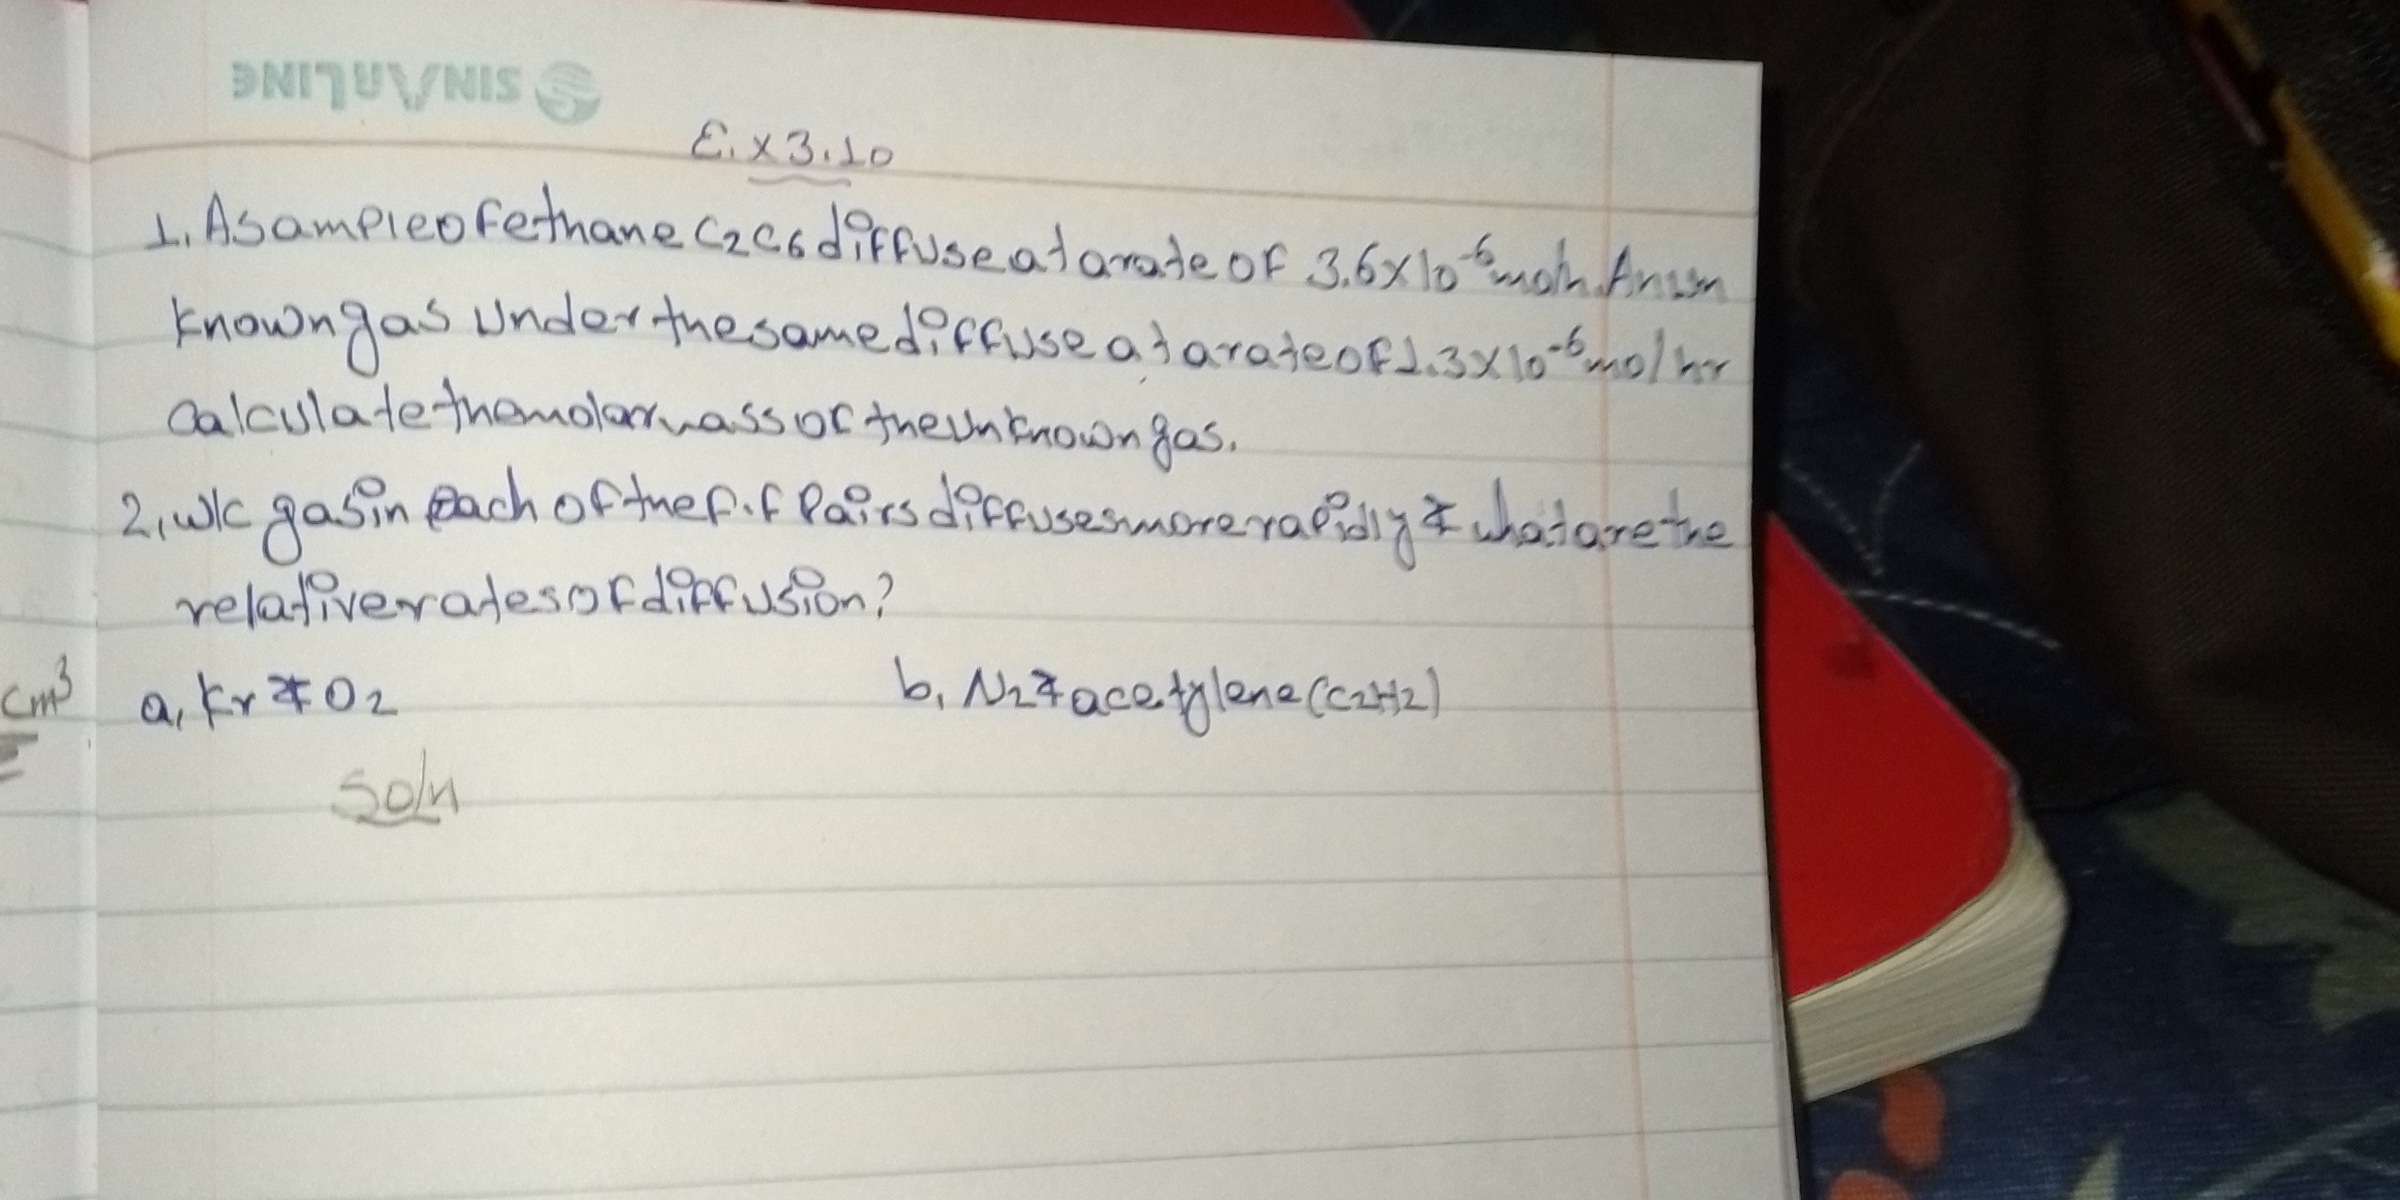 SINARLINE
E.x 3.10
1. A sample of ethane C2C6 diffuse at a rate of 3.6x10^-6 mol/h. An un
known gas under the same diffuse at a rate of 1.3x10^-6 mol/hr
calculate the molar mass of the unknown gas.
2, w/c gas in each of the f.f Pairs diffuses more rapidly & what are the
relative rates of diffusion?
cm³ a, Kr & O2 b, N2 & acetylene (C2H2)
Soln